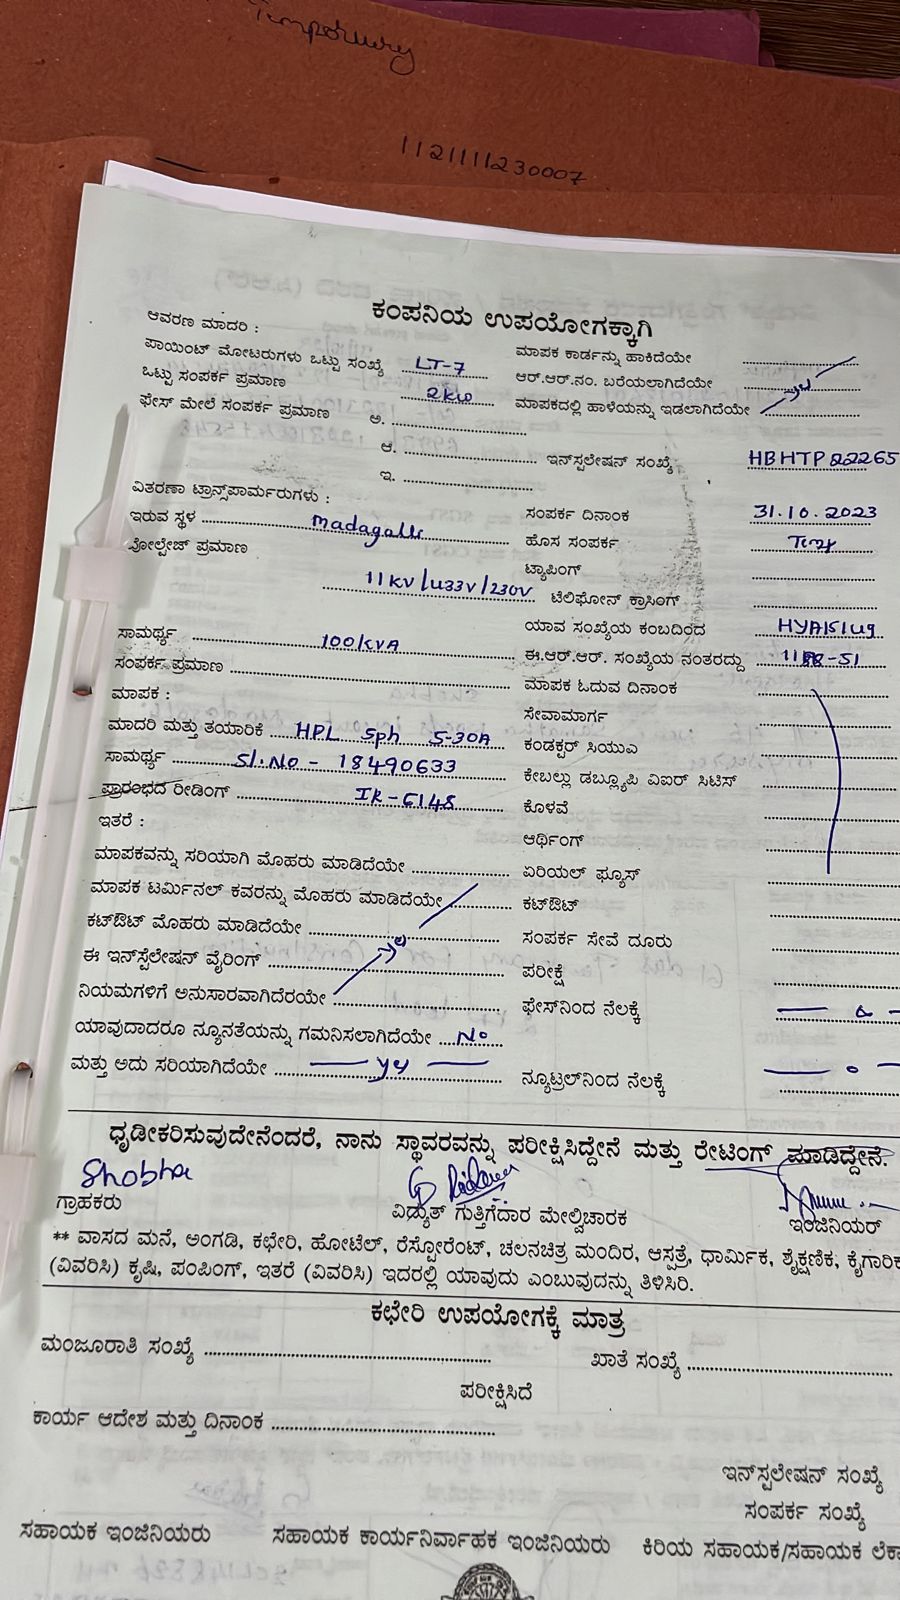 Temporary
1121111230007
ಕಂಪನಿಯ ಉಪಯೋಗಕ್ಕಾಗಿ
ಆವರಣ ಮಾದರಿ :
ಪಾಯಿಂಟ್ ಮೋಟರುಗಳು ಒಟ್ಟು ಸಂಖ್ಯೆ LT-7 ಮಾಪಕ ಕಾರ್ಡನ್ನು ಹಾಕಿದೆಯೇ
ಒಟ್ಟು ಸಂಪರ್ಕ ಪ್ರಮಾಣ 2KW ಆರ್.ಆರ್.ನಂ. ಬರೆಯಲಾಗಿದೆಯೇ
ಫೇಸ್ ಮೇಲೆ ಸಂಪರ್ಕ ಪ್ರಮಾಣ ಅ. ಮಾಪಕದಲ್ಲಿ ಹಾಳೆಯನ್ನು ಇಡಲಾಗಿದೆಯೇ
ಆ. ಇನ್‌ಸ್ಪಲೇಷನ್ ಸಂಖ್ಯೆ HBHTP22265
ಇ.
ವಿತರಣಾ ಟ್ರಾನ್ಸ್‌ಪಾರ್ಮರುಗಳು : ಸಂಪರ್ಕ ದಿನಾಂಕ 31.10.2023
ಇರುವ ಸ್ಥಳ ಹೊಸ ಸಂಪರ್ಕ
ವೋಲ್ಟೇಜ್ ಪ್ರಮಾಣ ಟ್ಯಾಪಿಂಗ್
11KV/433V/230V ಟೆಲಿಫೋನ್ ಕ್ರಾಸಿಂಗ್
ಸಾಮರ್ಥ್ಯ 100KVA ಯಾವ ಸಂಖ್ಯೆಯ ಕಂಬದಿಂದ
ಸಂಪರ್ಕ ಪ್ರಮಾಣ ಈ.ಆರ್.ಆರ್. ಸಂಖ್ಯೆಯ ನಂತರದ್ದು
ಮಾಪಕ : ಮಾಪಕ ಓದುವ ದಿನಾಂಕ
ಮಾದರಿ ಮತ್ತು ತಯಾರಿಕೆ HPL Sph 5-30A ಸೇವಾಮಾರ್ಗ
ಸಾಮರ್ಥ್ಯ Sl.No - 18490633 ಕಂಡಕ್ಟರ್ ಸಿಯುಎ
ಪ್ರಾರಂಭದ ರೀಡಿಂಗ್ ಕೇಬಲ್ಲು ಡಬ್ಲ್ಯೂಪಿ ವಿಐರ್ ಸಿಟಿಸ್
ಇತರೆ : ಕೊಳವೆ
ಆರ್ಥಿಂಗ್
ಮಾಪಕವನ್ನು ಸರಿಯಾಗಿ ಮೊಹರು ಮಾಡಿದೆಯೇ ಏರಿಯಲ್ ಫ್ಯೂಸ್
ಮಾಪಕ ಟರ್ಮಿನಲ್ ಕವರನ್ನು ಮೊಹರು ಮಾಡಿದೆಯೇ ಕಟ್‌ಔಟ್
ಕಟ್‌ಔಟ್ ಮೊಹರು ಮಾಡಿದೆಯೇ ಸಂಪರ್ಕ ಸೇವೆ ದೂರು
ಈ ಇನ್‌ಸ್ಪೆಲೇಷನ್ ವೈರಿಂಗ್ ಪರೀಕ್ಷೆ
ನಿಯಮಗಳಿಗೆ ಅನುಸಾರವಾಗಿದೆರಯೇ ಫೇಸ್‌ನಿಂದ ನೆಲಕ್ಕೆ
ಯಾವುದಾದರೂ ನ್ಯೂನತೆಯನ್ನು ಗಮನಿಸಲಾಗಿದೆಯೇ No
ಮತ್ತು ಅದು ಸರಿಯಾಗಿದೆಯೇ ನ್ಯೂಟ್ರಲ್‌ನಿಂದ ನೆಲಕ್ಕೆ
ಧೃಡೀಕರಿಸುವುದೇನೆಂದರೆ, ನಾನು ಸ್ಥಾವರವನ್ನು ಪರೀಕ್ಷಿಸಿದ್ದೇನೆ ಮತ್ತು ರೇಟಿಂಗ್ ಮಾಡಿದ್ದೇನೆ.
Shobha
ಗ್ರಾಹಕರು ವಿದ್ಯುತ್ ಗುತ್ತಿಗೆದಾರ ಮೇಲ್ವಿಚಾರಕ ಇಂಜಿನಿಯರ್
** ವಾಸದ ಮನೆ, ಅಂಗಡಿ, ಕಛೇರಿ, ಹೋಟೆಲ್, ರೆಸ್ಟೋರೆಂಟ್, ಚಲನಚಿತ್ರ ಮಂದಿರ, ಆಸ್ಪತ್ರೆ, ಧಾರ್ಮಿಕ, ಶೈಕ್ಷಣಿಕ, ಕೈಗಾರಿಕ
(ವಿವರಿಸಿ) ಕೃಷಿ, ಪಂಪಿಂಗ್, ಇತರೆ (ವಿವರಿಸಿ) ಇದರಲ್ಲಿ ಯಾವುದು ಎಂಬುವುದನ್ನು ತಿಳಿಸಿರಿ.
ಕಛೇರಿ ಉಪಯೋಗಕ್ಕೆ ಮಾತ್ರ
ಮಂಜೂರಾತಿ ಸಂಖ್ಯೆ ಖಾತೆ ಸಂಖ್ಯೆ
ಪರೀಕ್ಷಿಸಿದೆ
ಕಾರ್ಯ ಆದೇಶ ಮತ್ತು ದಿನಾಂಕ
ಇನ್‌ಸ್ಪಲೇಷನ್ ಸಂಖ್ಯೆ
ಸಂಪರ್ಕ ಸಂಖ್ಯೆ
ಸಹಾಯಕ ಇಂಜಿನಿಯರು ಸಹಾಯಕ ಕಾರ್ಯನಿರ್ವಾಹಕ ಇಂಜಿನಿಯರು ಕಿರಿಯ ಸಹಾಯಕ/ಸಹಾಯಕ ಲೆಕಾ